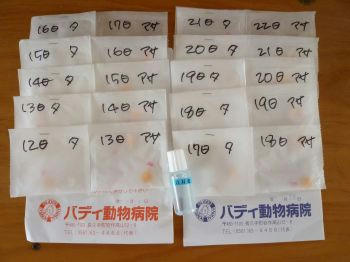 16日 夕
17日 アサ
21日 夕
22日 アサ
15日 夕
16日 アサ
20日 夕
21日 アサ
14日 夕
15日 アサ
19日 夕
20日 アサ
13日 夕
14日 アサ
18日 夕
19日 アサ
12日 夕
13日 アサ
17日 夕
18日 アサ
バディ動物病院
バディ動物病院